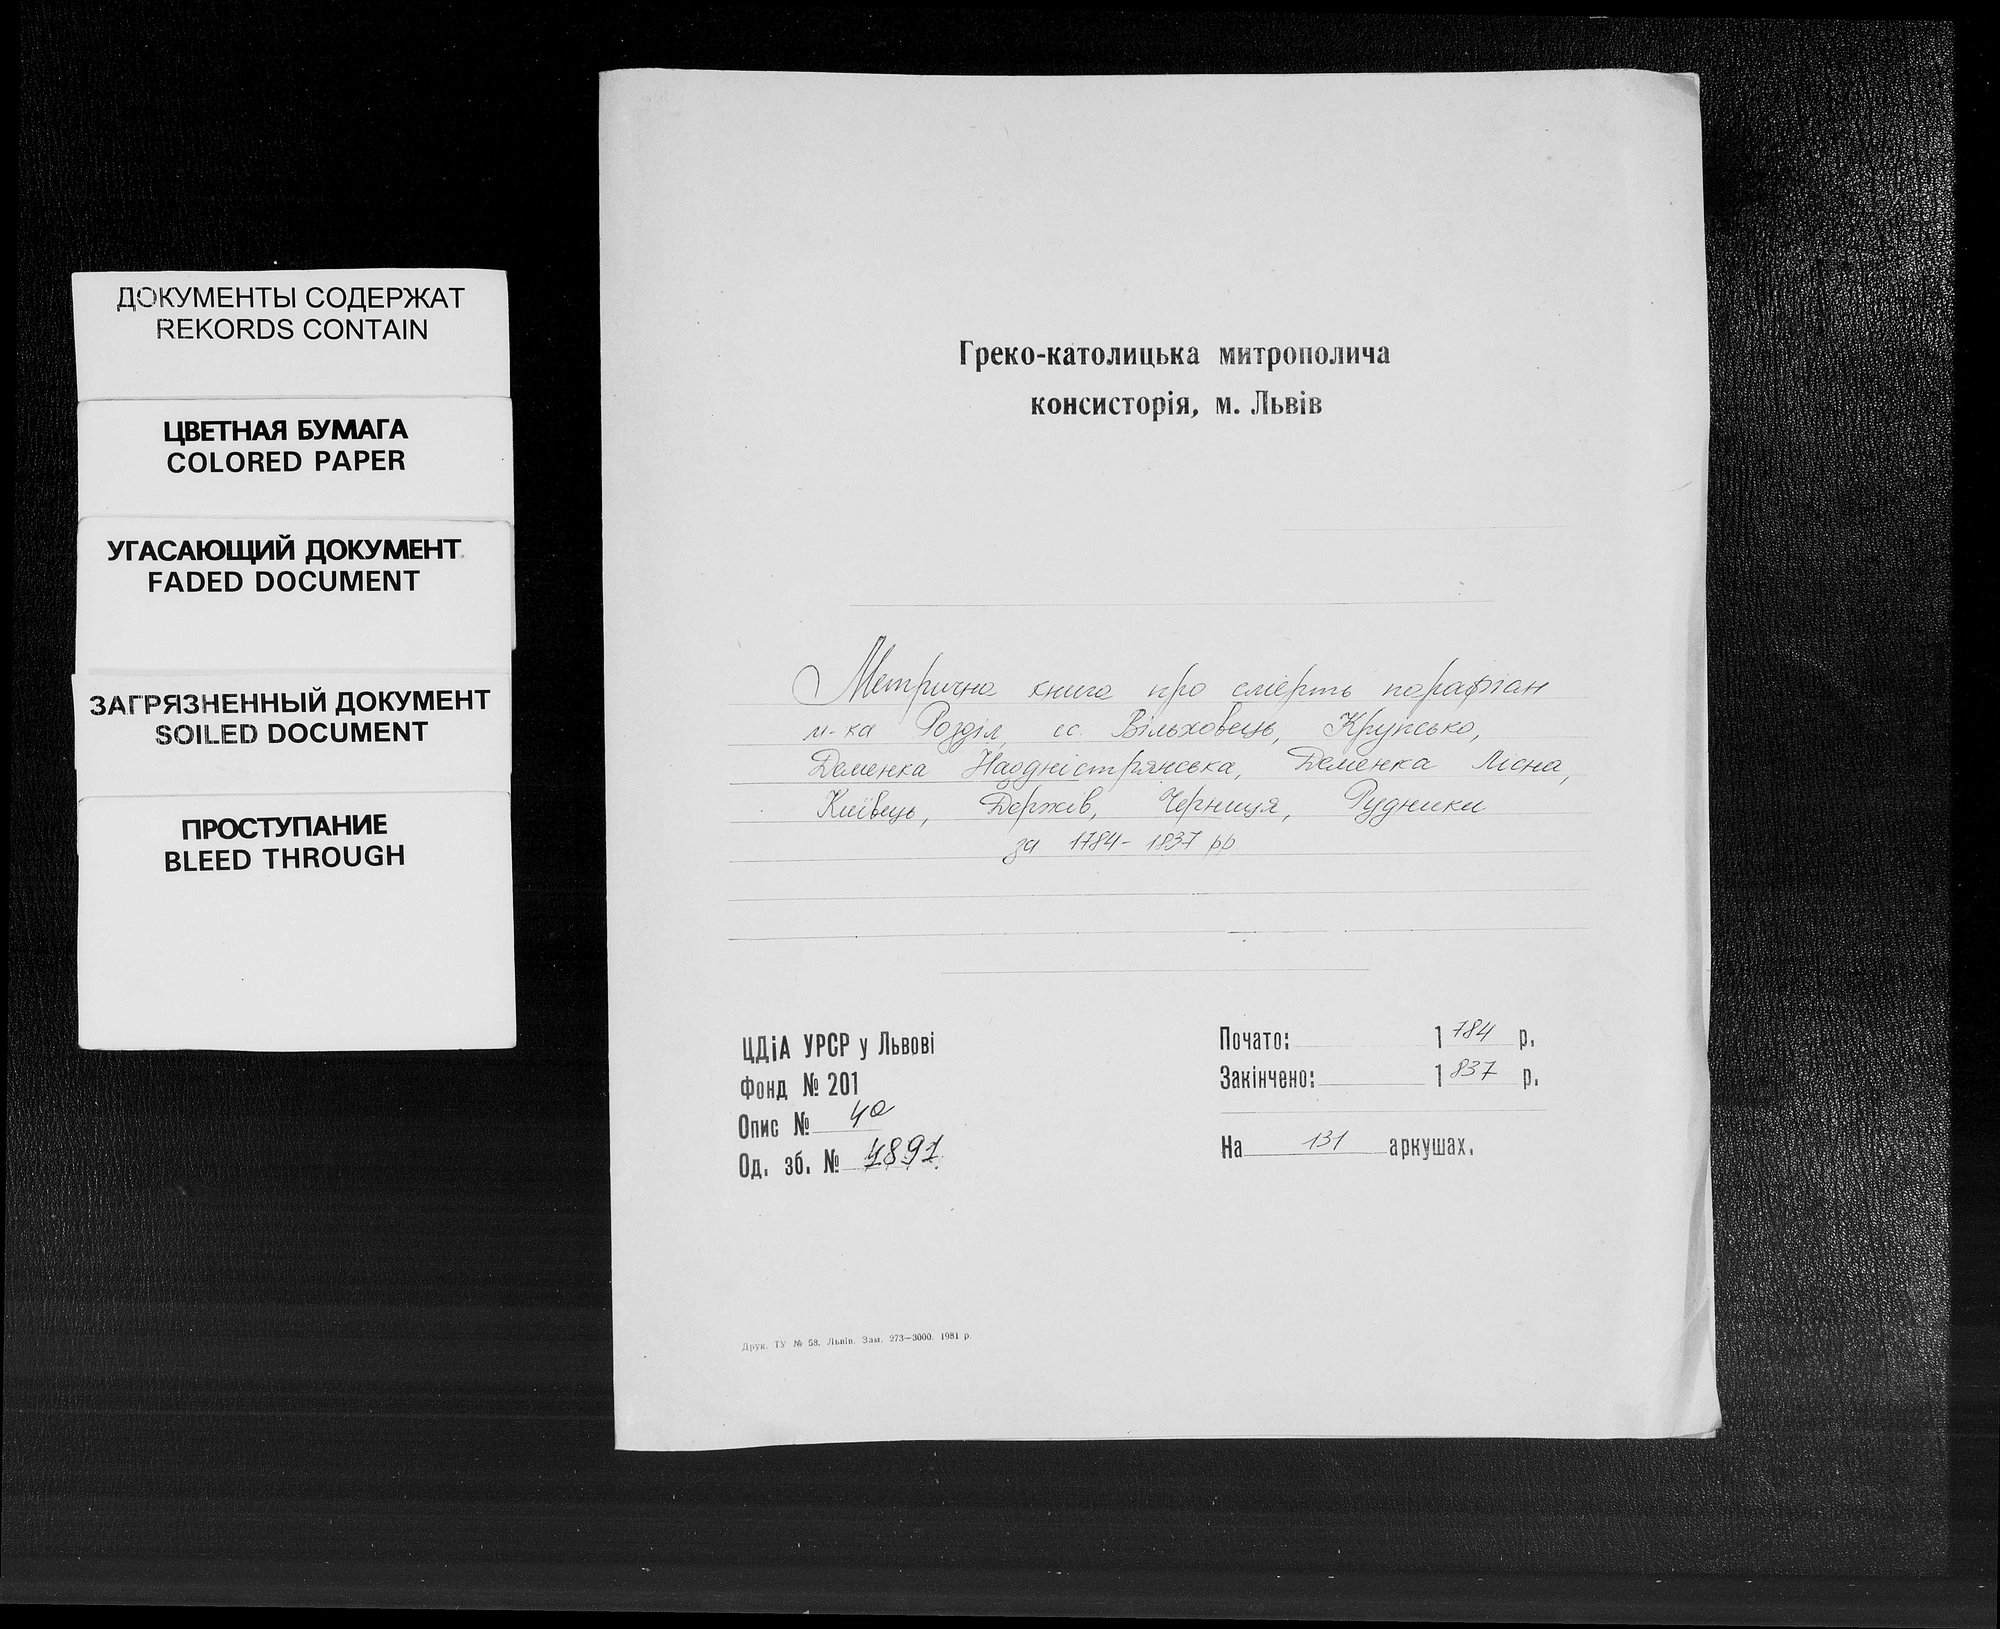 ДОКУМЕНТЫ СОДЕРЖАТ
REKORDS CONTAIN
ЦВЕТНАЯ БУМАГА
COLORED PAPER
УГАСАЮЩИЙ ДОКУМЕНТ
FADED DOCUMENT
ЗАГРЯЗНЕННЫЙ ДОКУМЕНТ
SOILED DOCUMENT
ПРОСТУПАНИЕ
BLEED THROUGH
Греко-католицька митрополича
консисторія, м. Львів
Метрична книга про смерть парафіан
м-ка Розділ, сс. Вільховець, Крупсько,
Деменка Наддністрянська, Деменка Лісна,
Київець, Держів, Черниця, Рудники
за 1784-1837 рр
ЦДіА УРСР у Львові
Фонд № 201
Опис № 4а
Од. зб. № 4891
Почато: 1784 р.
Закінчено: 1837 р.
На 131 аркушах.
Друк. ТУ № 58. Львів. Зам. 273—3000. 1981 р.